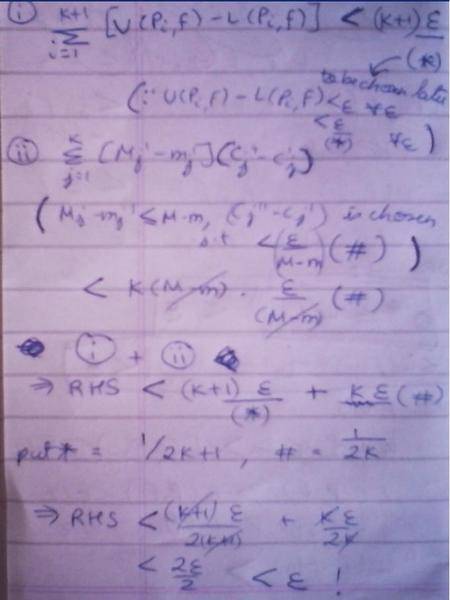 (i) k+1 Σ i=1 [U(Pi,f) - L(Pi,f)] < (k+1) ε
(*)
to be chosen later
(∵ U(Pi,f) - L(Pi,f) < ε ∀ε
< ε/(*) ∀ε )
(ii) k Σ j=1 [Mj' - mj'](Cj'' - Cj')
( Mj' - mj' ≤ M-m, (Cj'' - Cj') is chosen
s.t < (ε/M-m) (#) )
< k(M-m) . ε/(M-m) (#)
(i) + (ii)
⇒ RHS < (k+1) ε/(*) + k ε (#)
put * = 1/2k+1 , # = 1/2k
⇒ RHS < (k+1) ε/2(k+1) + k ε/2k
< 2ε/2 < ε !